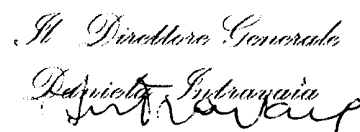 Il Direttore Generale
Daniela Intravaia